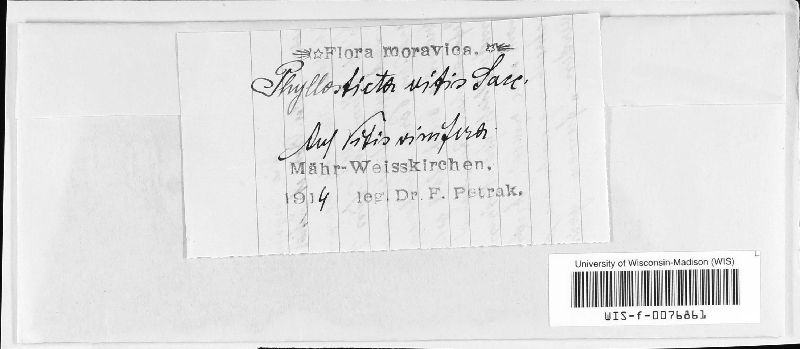 ☆Flora moravica.☆
Phyllosticta vitis Sacc.
Auf Vitis vinifera.
Mähr-Weisskirchen.
1914 leg. Dr. F. Petrak.
University of Wisconsin-Madison (WIS)
WIS-f-0076861